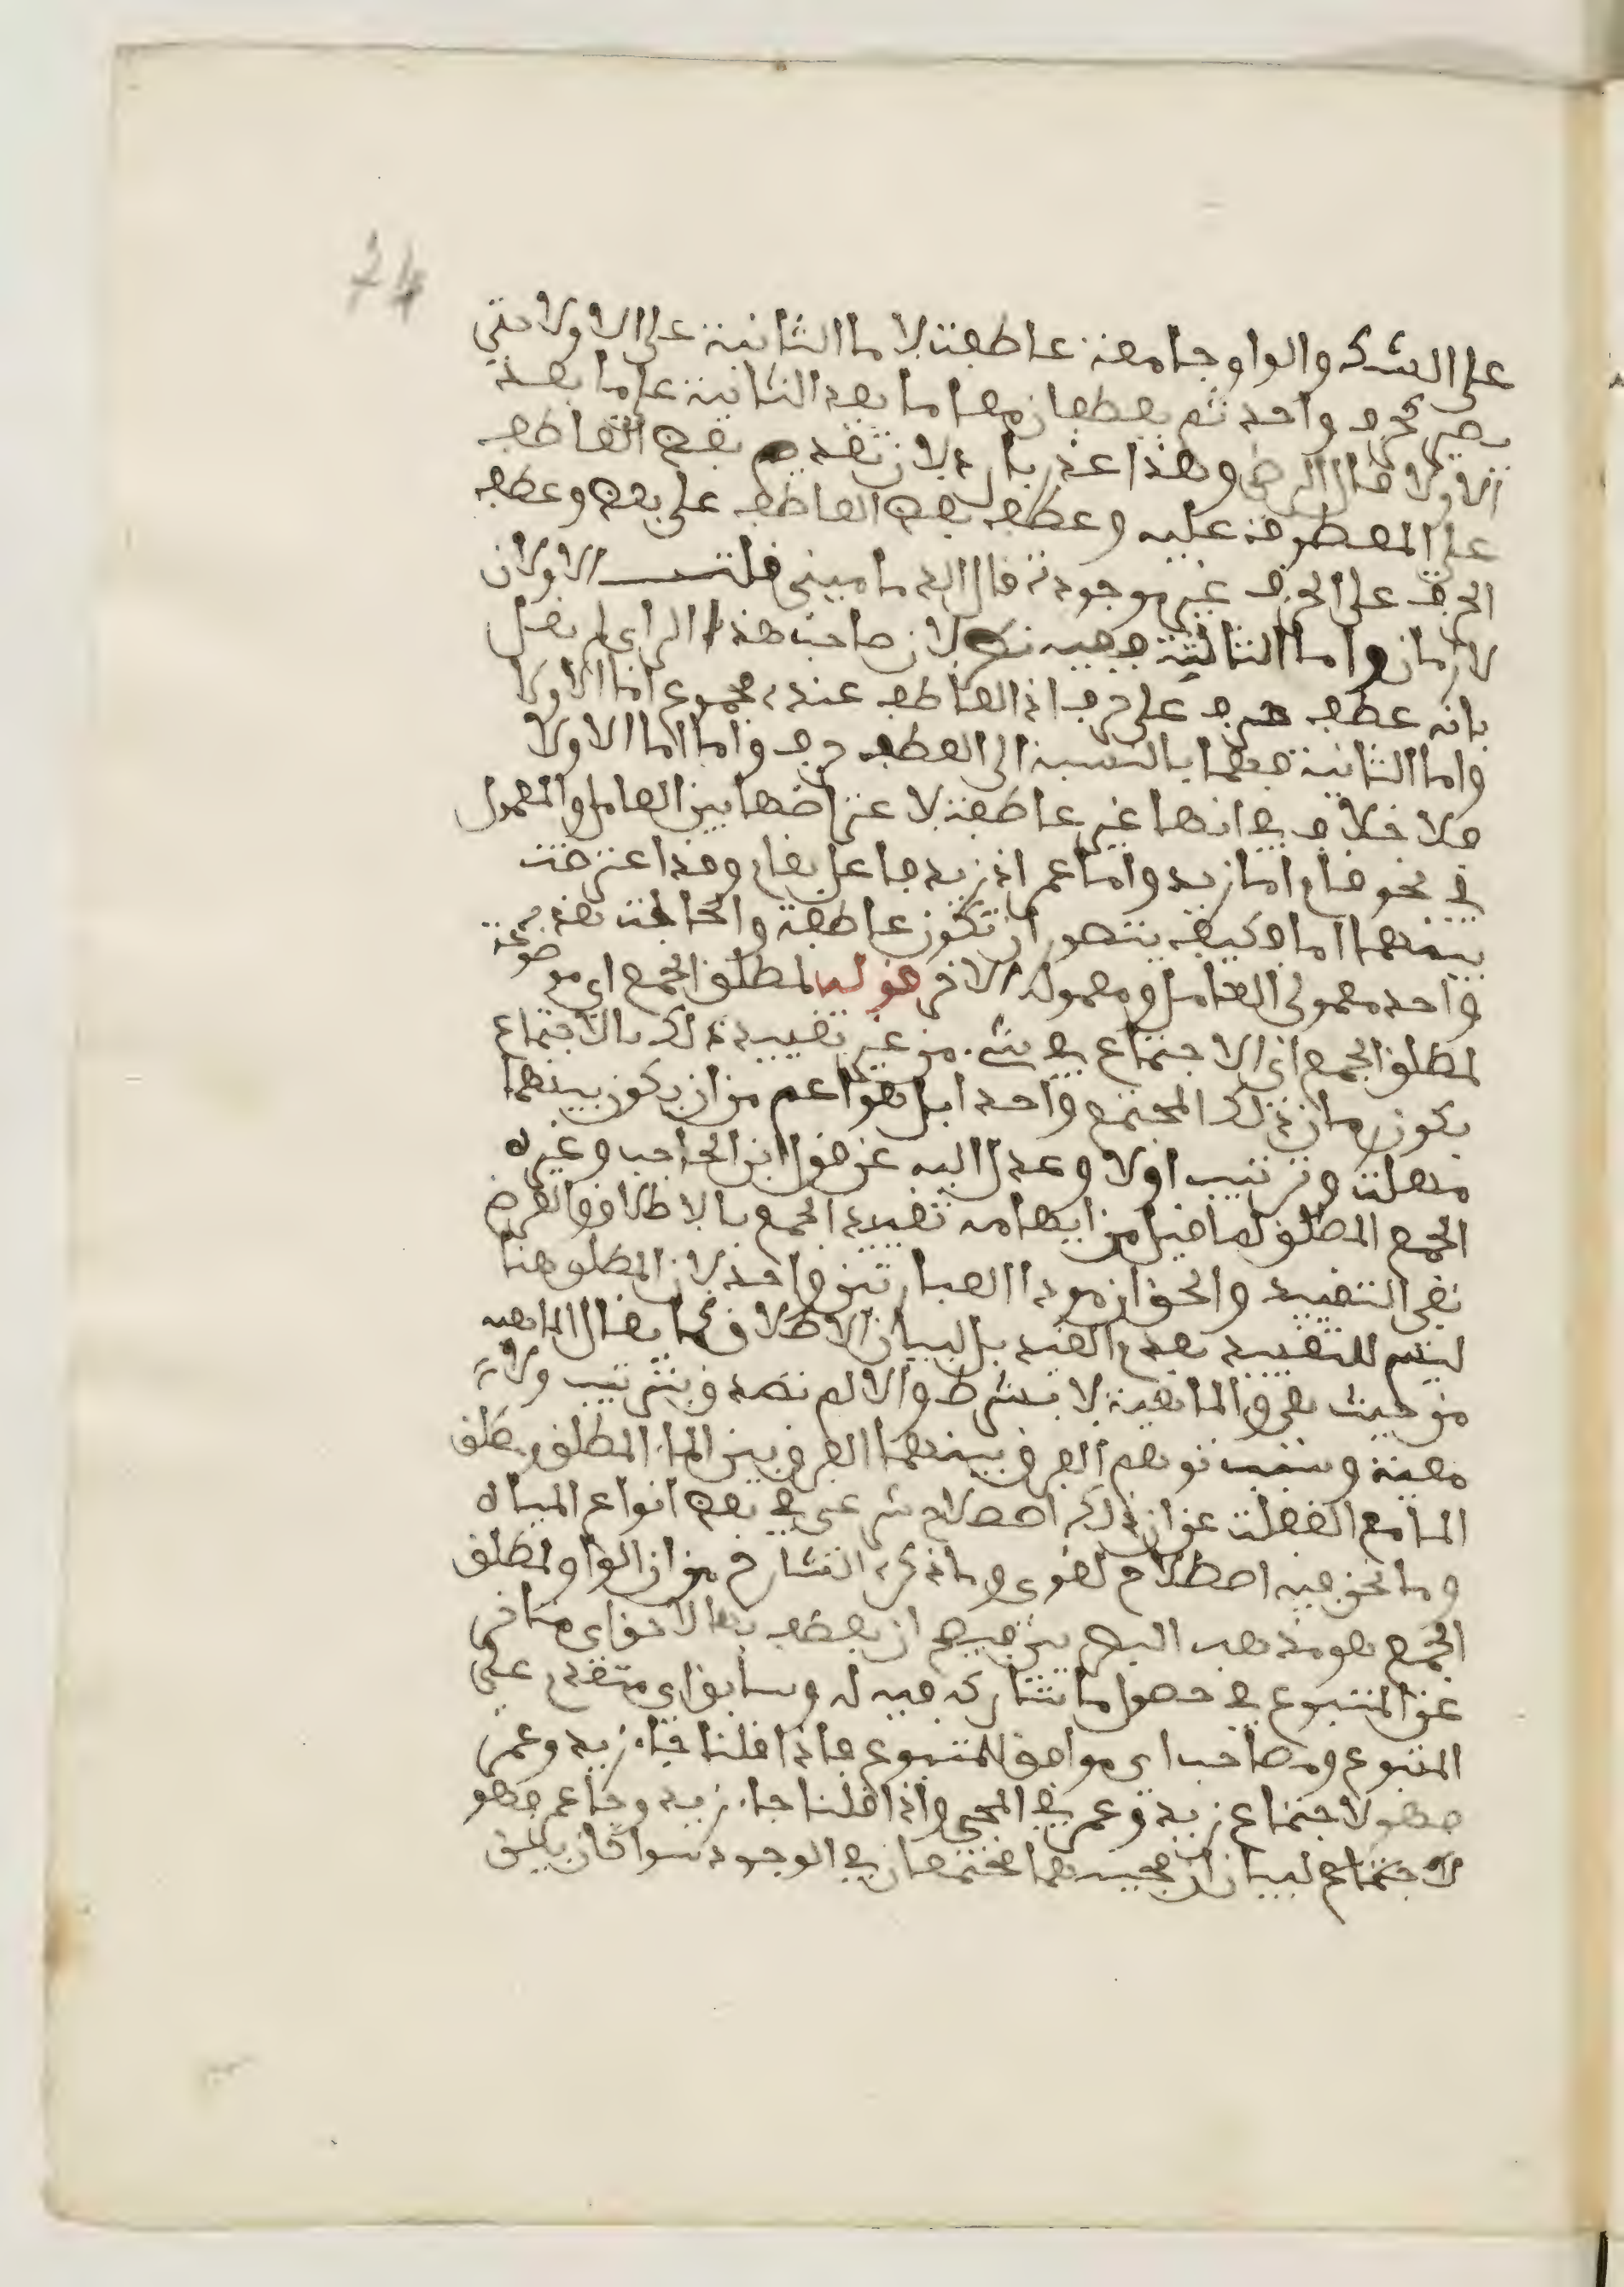 74
على الشك والواو جامعة عاطفة لاما الثانية على الاولا حتى
يصير كحرف واحد ثم يعطفان معا ما بعد الثانية على ما بعد
الاولا قال الرضى وهذا عذر بارد لان تقديم بعض العاطف
على المعطوف عليه وعطف بعض العاطف على بعض وعطف
الحرف على الحرف غير موجودة قال الدمامينى قلت الاولان
لازمان واما الثالثة ففيه نظر لان صاحب هذا الراى لم يقل
بانه عطف حرف على حرف اذ العاطف عنده مجموع اما الاولا
واما الثانية فهما بالنسبة الى العطف حرف واما اما الاولا
فلا خلاف في انها غير عاطفة لاعتراضها بين العامل والمعمول
في نحو قام اما زيد واما عمر اذ زيد فاعل بقام وقد اعترضت
بينهما اما فكيف يتصور ان تكون عاطفة والحالة هذه
واحد معمولى العامل ومعموله الاخر قوله لمطلق الجمع اى موضوعة
لمطلق الجمع اى الاجتماع في شىء من غير تقييد ذلك بالاجتماع
بكون زمان ذلك المجتمع واحدا بل هو اعم من ان يكون بينهما
مهلة وترتيب اولا وعدل اليه عن قول ابن الحاجب وغيره
الجمع المطلق لما قيل من ايهامه تقييد الجمع بالاطلاق والغرض
نفى التقييد والحق ان مودا العبارتين واحد لان المطلق هنا
ليس للتقييد بعدم القيد بل لبيان الاطلاق كما يقال الماهيه
من حيث هى والماهية لا بشرط والا لم تصدق بترتيب ولا
معية وسبب توهم الفرق بينهما الفرق بين الماء المطلق ومطلق
الما مع الغفلة عن ان ذلك اصطلاح شرعى في بعض انواع المياه
وما نحن فيه اصطلاح لغوى وما ذكره الشارح من ان الواو لمطلق
الجمع هو مذهب البصريين فيصح ان يعطف بها لاحق اى متاخر
عن المتبوع في حصول ما يشاركه فيه له وسابق اى متقدم على
المتبوع ومصاحب اى موافق للمتبوع فاذا قلنا جاء زيد وعمر
فهو لاجتماع زيد وعمر في المجى واذا قلنا جاء زيد وجا عمر فهو
لاجتماع لبيان ان مجييهما مجتمعان في الوجود سوا كان بايق